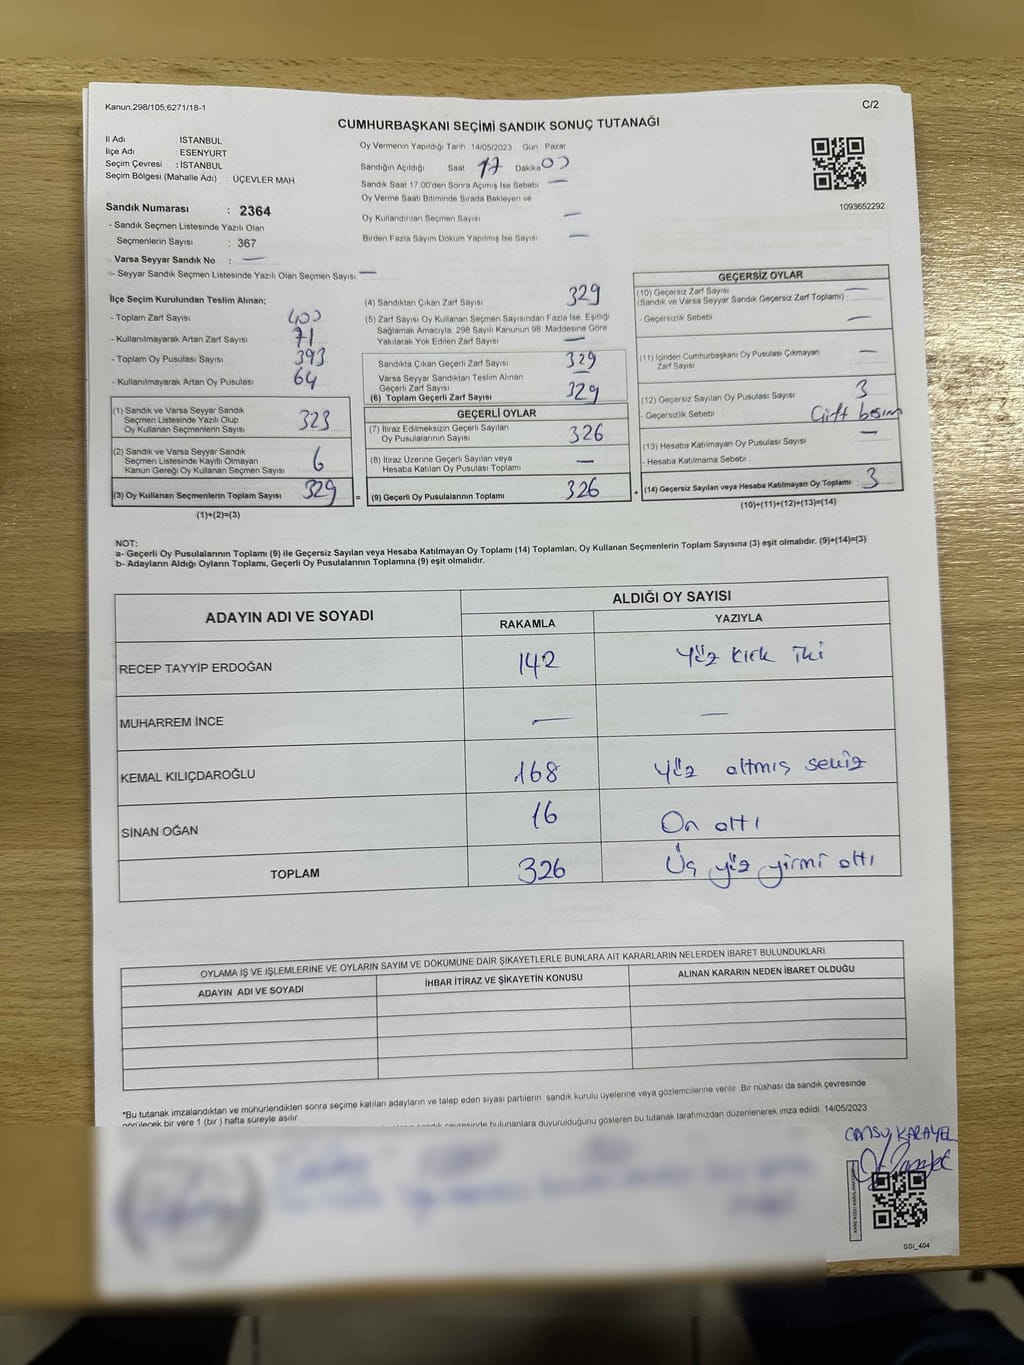 Kanun;298/105;6271/18-1
C/2
CUMHURBAŞKANI SEÇİMİ SANDIK SONUÇ TUTANAĞI
İl Adı : İSTANBUL
İlçe Adı : ESENYURT
Seçim Çevresi : İSTANBUL
Seçim Bölgesi (Mahalle Adı) : ÜÇEVLER MAH
Sandık Numarası : 2364
- Sandık Seçmen Listesinde Yazılı Olan
Seçmenlerin Sayısı : 367
Varsa Seyyar Sandık No : —
- Seyyar Sandık Seçmen Listesinde Yazılı Olan Seçmen Sayısı —
Oy Vermenin Yapıldığı Tarih 14/05/2023 Gün : Pazar
Sandığın Açıldığı Saat 17 Dakika 00
Sandık Saat 17:00'den Sonra Açımış İse Sebebi —
Oy Verme Saati Bitiminde Sırada Bekleyen ve
Oy Kullandırılan Seçmen Sayısı —
Birden Fazla Sayım Döküm Yapılmış İse Sayısı —
1093652292
İlçe Seçim Kurulundan Teslim Alınan;
- Toplam Zarf Sayısı 400
- Kullanılmayarak Artan Zarf Sayısı 71
- Toplam Oy Pusulası Sayısı 393
- Kullanılmayarak Artan Oy Pusulası 64
(1) Sandık ve Varsa Seyyar Sandık
Seçmen Listesinde Yazılı Olup
Oy Kullanan Seçmenlerin Sayısı 323
(2) Sandık ve Varsa Seyyar Sandık
Seçmen Listesinde Kayıtlı Olmayan
Kanun Gereği Oy Kullanan Seçmen Sayısı 6
(3) Oy Kullanan Seçmenlerin Toplam Sayısı 329 =
(1)+(2)=(3)
(4) Sandıktan Çıkan Zarf Sayısı 329
(5) Zarf Sayısı Oy Kullanan Seçmen Sayısından Fazla İse, Eşitliği
Sağlamak Amacıyla, 298 Sayılı Kanunun 98. Maddesine Göre
Yakılarak Yok Edilen Zarf Sayısı —
Sandıkta Çıkan Geçerli Zarf Sayısı 329
Varsa Seyyar Sandıktan Teslim Alınan
Geçerli Zarf Sayısı —
(6) Toplam Geçerli Zarf Sayısı 329
GEÇERLİ OYLAR
(7) İtiraz Edilmeksizin Geçerli Sayılan
Oy Pusulalarının Sayısı 326
(8) İtiraz Üzerine Geçerli Sayılan veya
Hesaba Katılan Oy Pusulası Toplamı —
(9) Geçerli Oy Pusulalarının Toplamı 326 +
GEÇERSİZ OYLAR
(10) Geçersiz Zarf Sayısı —
(Sandık ve Varsa Seyyar Sandık Geçersiz Zarf Toplamı)
- Geçersizlik Sebebi —
(11) İçinden Cumhurbaşkanı Oy Pusulası Çıkmayan —
Zarf Sayısı
(12) Geçersiz Sayılan Oy Pusulası Sayısı 3
- Geçersizlik Sebebi Çift basım
(13) Hesaba Katılmayan Oy Pusulası Sayısı —
- Hesaba Katılmama Sebebi
(14) Geçersiz Sayılan veya Hesaba Katılmayan Oy Toplamı : 3
(10)+(11)+(12)+(13)=(14)
NOT:
a- Geçerli Oy Pusulalarının Toplamı (9) ile Geçersiz Sayılan veya Hesaba Katılmayan Oy Toplamı (14) Toplamları, Oy Kullanan Seçmenlerin Toplam Sayısına (3) eşit olmalıdır. (9)+(14)=(3)
b- Adayların Aldığı Oyların Toplamı, Geçerli Oy Pusulalarının Toplamına (9) eşit olmalıdır.
ADAYIN ADI VE SOYADI ALDIĞI OY SAYISI
RAKAMLA YAZIYLA
RECEP TAYYİP ERDOĞAN 142 Yüz kırk iki
MUHARREM İNCE — —
KEMAL KILIÇDAROĞLU 168 yüz altmış sekiz
SİNAN OĞAN 16 On altı
TOPLAM 326 Üç yüz yirmi altı
OYLAMA İŞ VE İŞLEMLERİNE VE OYLARIN SAYIM VE DÖKÜMÜNE DAİR ŞİKAYETLERLE BUNLARA AİT KARARLARIN NELERDEN İBARET BULUNDUKLARI
ADAYIN ADI VE SOYADI İHBAR İTİRAZ VE ŞİKAYETİN KONUSU ALINAN KARARIN NEDEN İBARET OLDUĞU
*Bu tutanak imzalandıktan ve mühürlendikten sonra seçime katılan adayların ve talep eden siyasi partilerin sandık kurulu üyelerine veya gözlemcilerine verilir. Bir nüshası da sandık çevresinde
görülecek bir yere 1 (bir ) hafta süreyle asılır.
bulunanlara duyurulduğunu gösteren bu tutanak tarafımızdan düzenlenerek imza edildi. 14/05/2023
CANSU KARAYEL
SSI_404